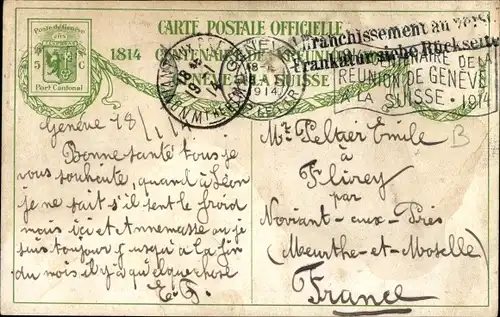 CARTE POSTALE OFFICIELLE
Poste de Genève
5 C
Port Cantonal
1814
Affranchissement au verso
Frankatur siehe Rückseite
CENTENAIRE DE LA
RÉUNION DE GENÈVE
A LA SUISSE · 1914
Genève 18/1/14
Bonne santé tous je
vous souhaite, quand à Léon
je ne sait s'il sent le froid
nous ici et Annemasse ou je
suis toujour jusqu'a la fin
du mois il y a quelque chose
E. F.
Mr Peltier Emile
à
Flirey
par
Noviant-aux-Prés
(Meurthe-et-Moselle)
France
B